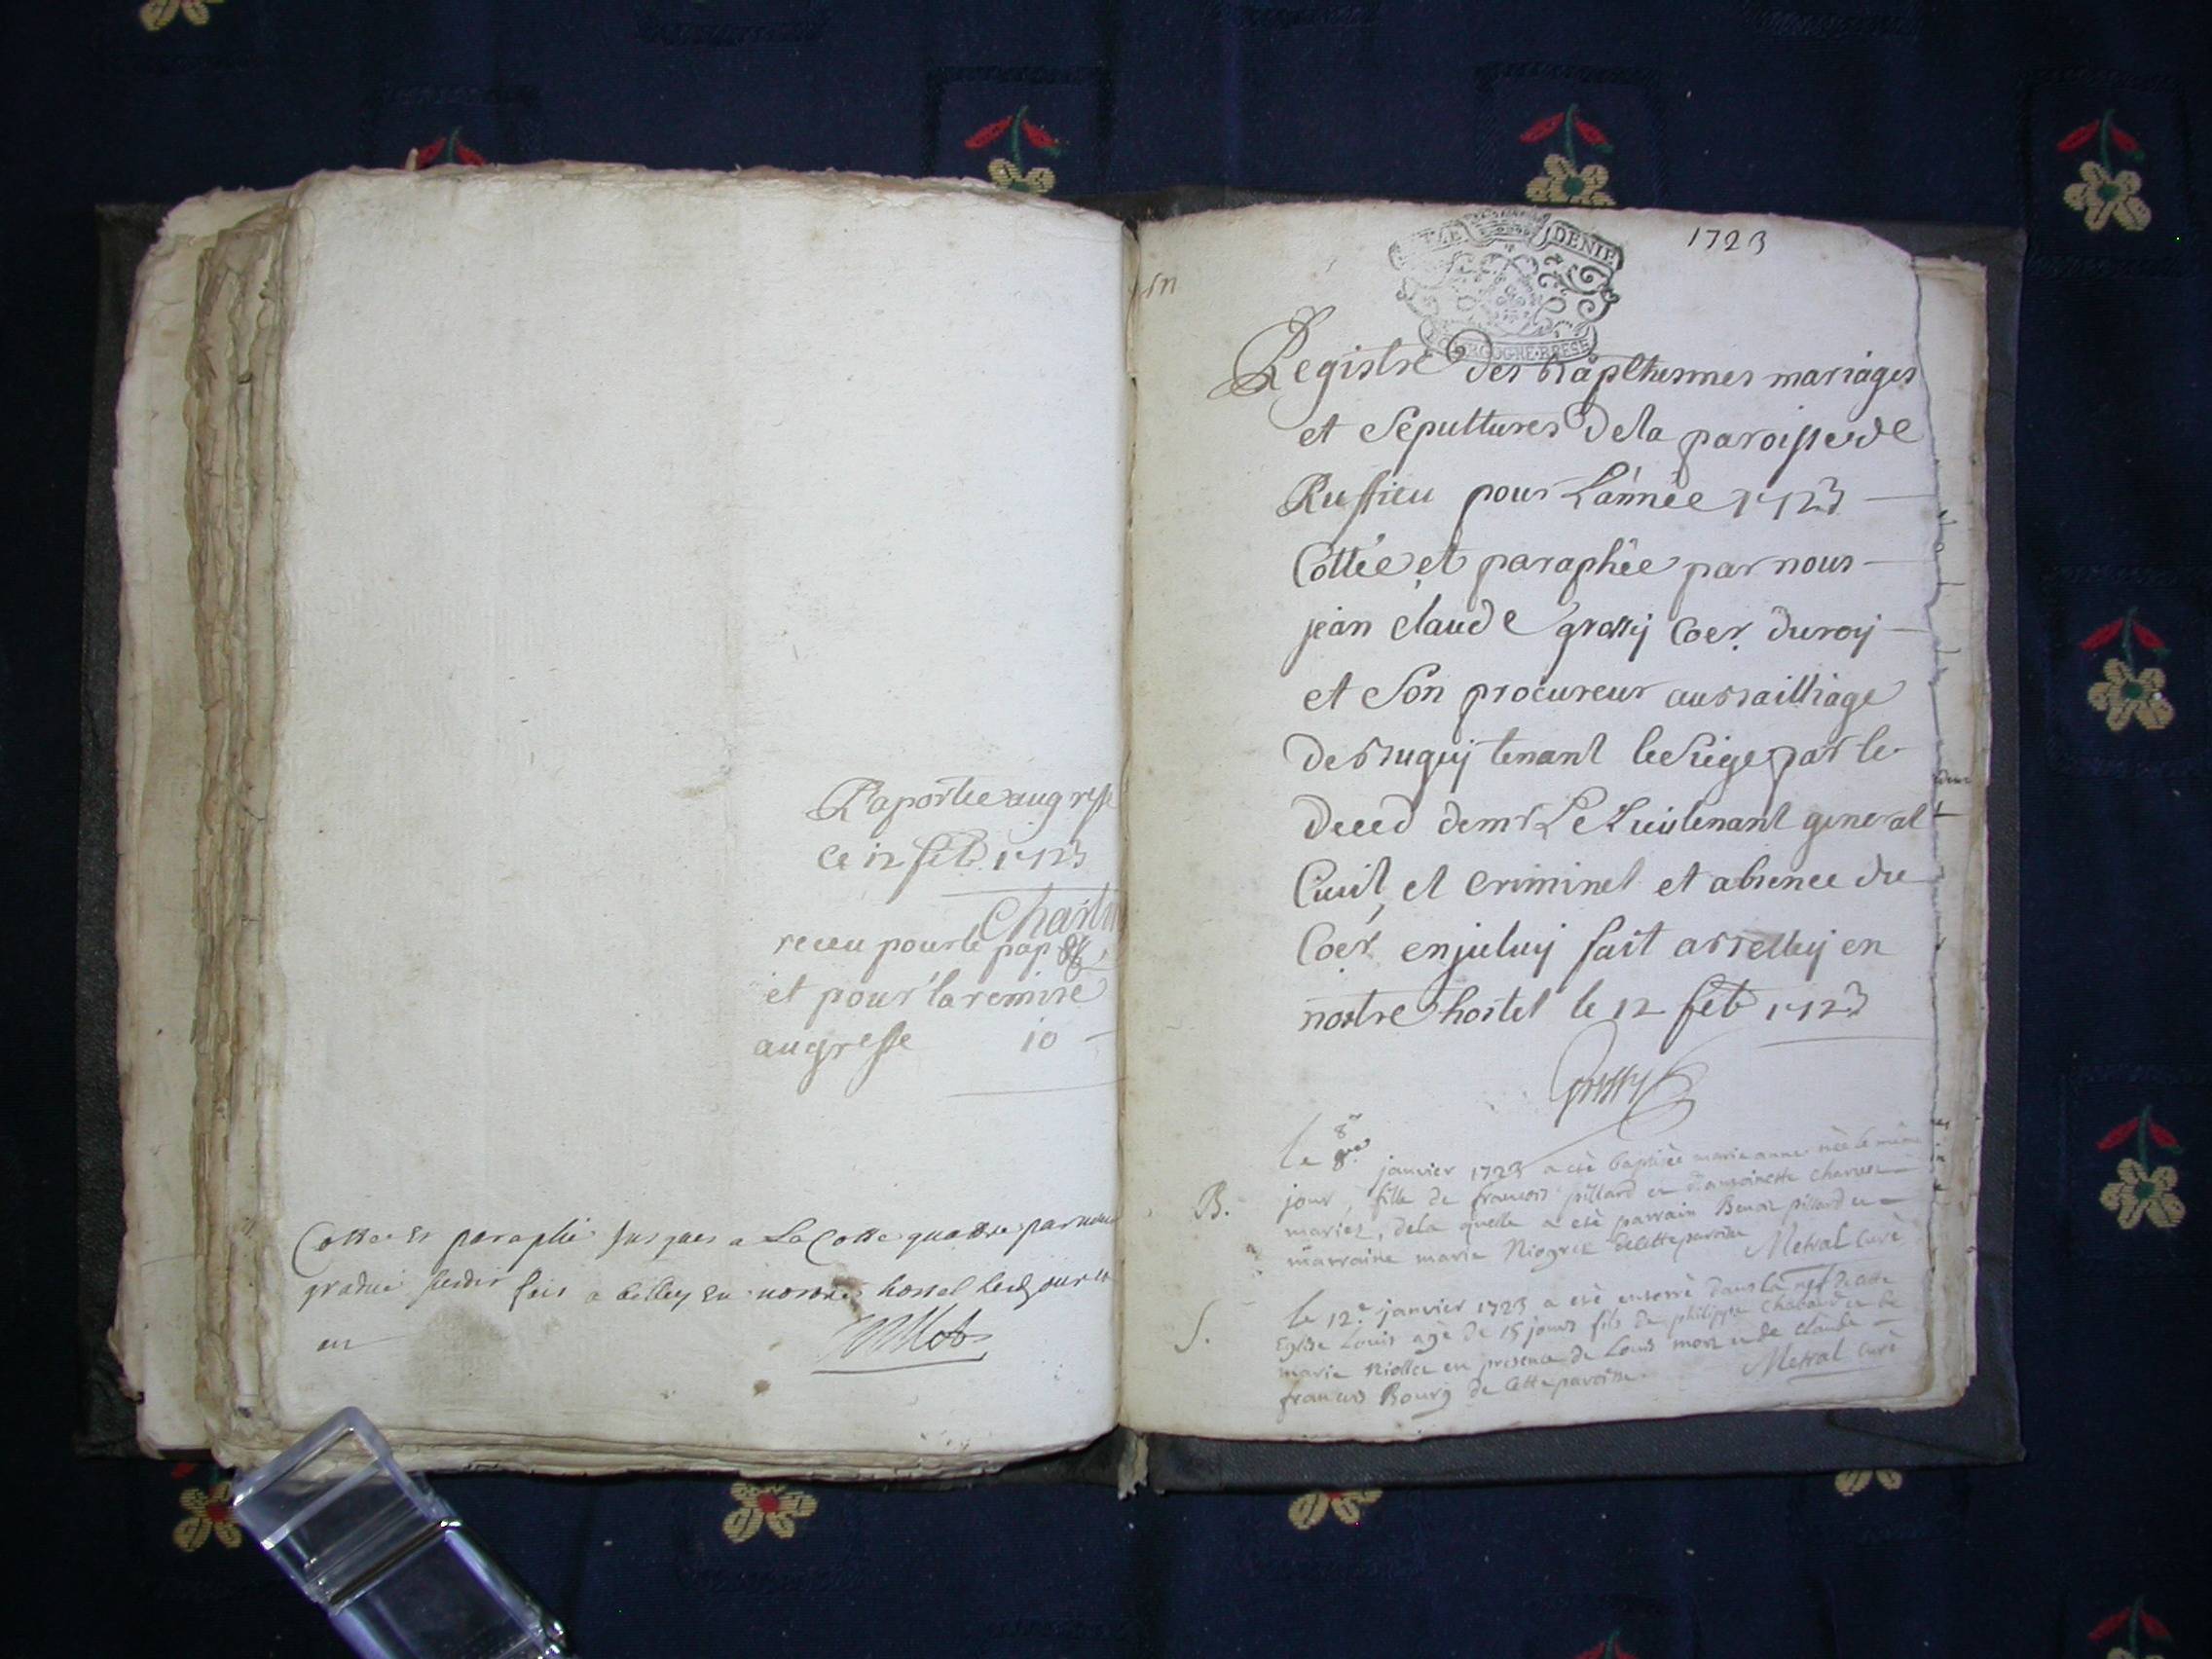 Raportée au greffe
Ce 12 feb. 1723
Chart
receu pour le pap
et pour la remise
au greffe 10 -
Cotté et paraphé jusques a La Cotte quattre par nous
gradué
fait a belley en nostre hostel
an
1723
DENIE
BOURGOGNE·BRESE
Registre des bapthesmes mariages
et Sepultures de la paroisse de
Ruffieu pour L'année 1723
Cottée et paraphée par nous
jean claude grossy Coer. du roy
et Son procureur au bailliage
de bugey tenant le Siege par le
deced de mr Le Lieutenant general
Civil et criminel et absence du
Coer enjceluy fait a belley en
nostre hostel le 12 feb 1723
Grossy
le 8e janvier 1723 a eté baptisée marie anne née le même
B. jour, fille de francois pillard et d'antoinette
mariez, de la quelle a eté parrain Benoit pillard et
marraine marie Niogret de cette paroisse Metral curé
le 12.e janvier 1723 a eté enterré dans la nef de cette
S. Eglise Louis agé de 15 jours fils de philippe Chabaud et de
marie Niollet en presence de Louis et de claude
francois Bourg de cette paroisse. Metral curé